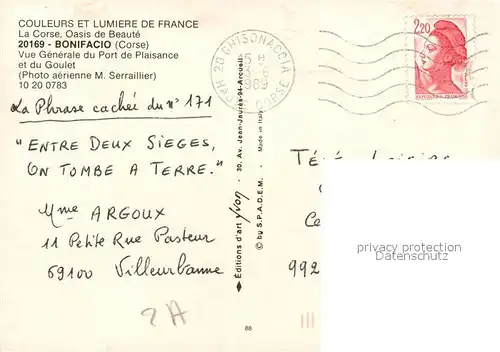 COULEURS ET LUMIERE DE FRANCE
La Corse, Oasis de Beauté
20169 - BONIFACIO (Corse)
Vue Générale du Port de Plaisance
et du Goulet
(Photo aérienne M. Serraillier)
10 20 0783
La Phrase cachée du n° 171
"ENTRE DEUX SIEGES,
ON TOMBE A TERRE."
Mme ARGOUX
11 Petite Rue Pasteur
69100 Villeurbanne
2A
Editions d'art yvon - 30, Av. Jean-Jaurès - Arcueil
© by S.P.A.D.E.M. - Made in Italy
88
20 GHISONACCIA
15 H
1989
CORSE
2,20
TÉLÉ
Ce
992
privacy protection